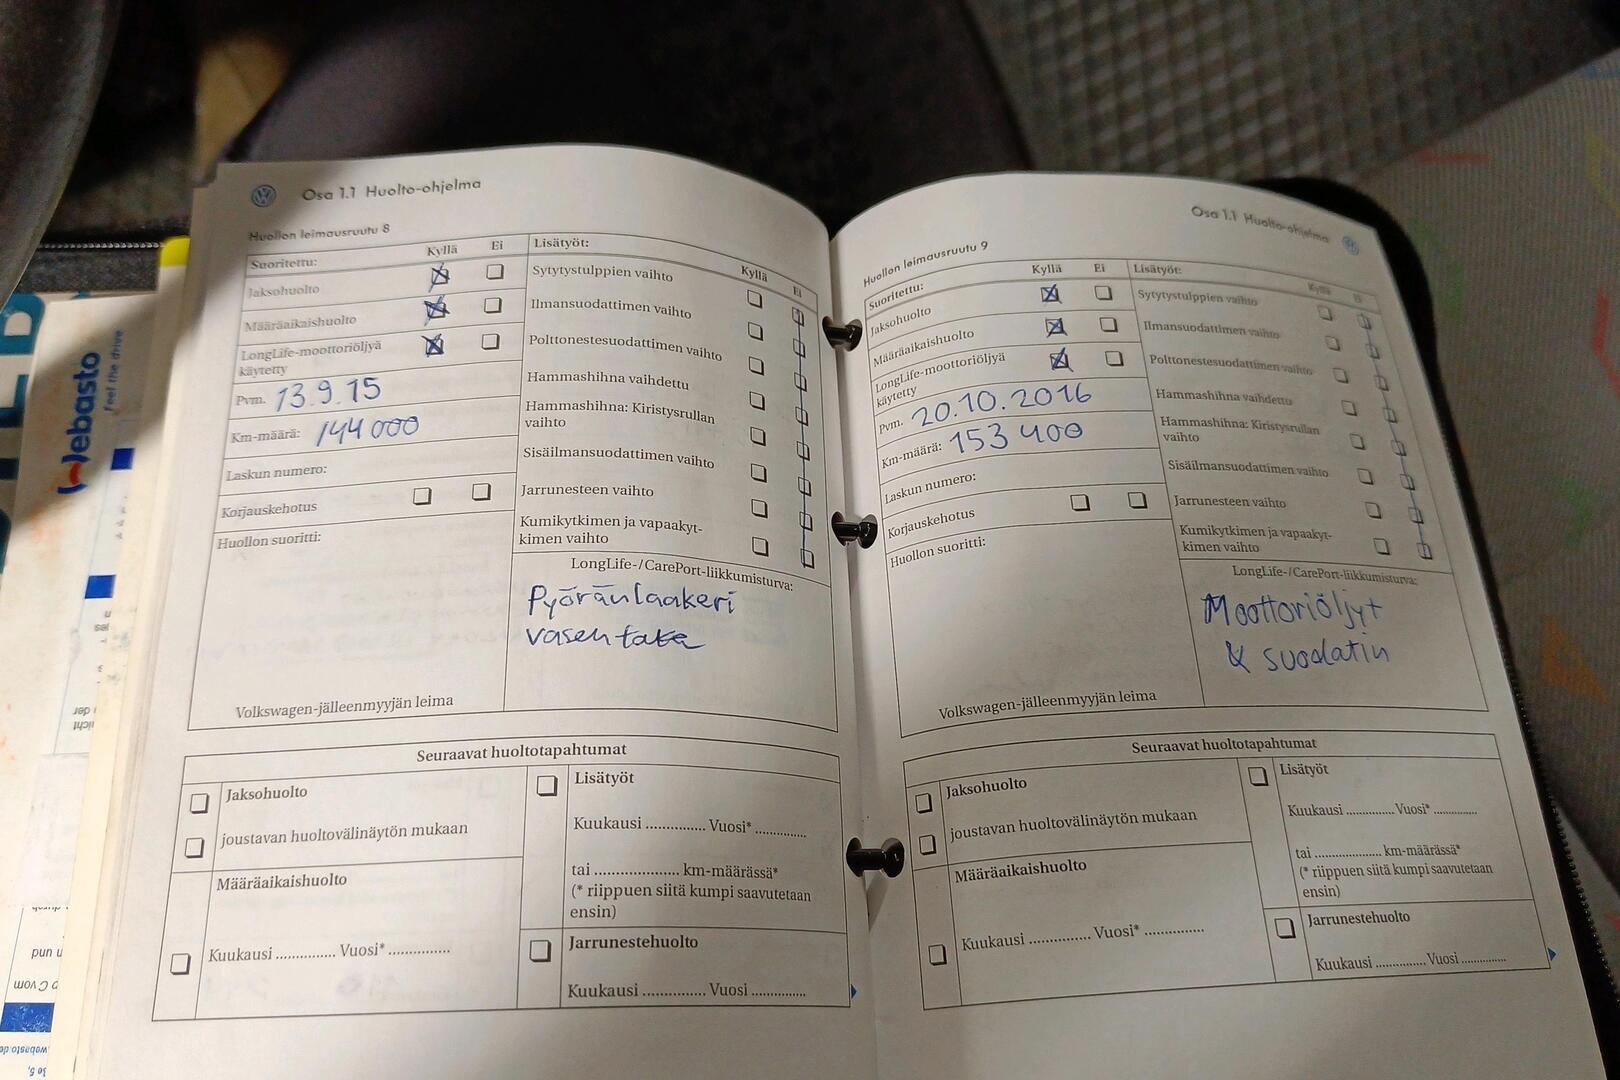 Osa 1.1 Huolto-ohjelma
Huollon leimausruutu 8
Suoritettu:
Kyllä
Ei
Jaksohuolto
Määräaikaishuolto
LongLife-moottoriöljyä
käytetty
Pvm. 13.9.15
Km-määrä: 144 000
Laskun numero:
Korjauskehotus
Huollon suoritti:
Volkswagen-jälleenmyyjän leima
Lisätyöt:
Kyllä
Ei
Sytytystulppien vaihto
Ilmansuodattimen vaihto
Polttonestesuodattimen vaihto
Hammashihna vaihdettu
Hammashihna: Kiristysrullan
vaihto
Sisäilmansuodattimen vaihto
Jarrunesteen vaihto
Kumikytkimen ja vapaakyt-
kimen vaihto
LongLife-/CarePort-liikkumisturva:
Pyöränlaakeri
vasen taka
Seuraavat huoltotapahtumat
Jaksohuolto
joustavan huoltovälinäytön mukaan
Määräaikaishuolto
Kuukausi ............... Vuosi* ...............
Lisätyöt
Kuukausi .............. Vuosi* ............
tai .................... km-määrässä*
(* riippuen siitä kumpi saavutetaan
ensin)
Jarrunestehuolto
Kuukausi ............... Vuosi .............
Osa 1.1 Huolto-ohjelma
Huollon leimausruutu 9
Suoritettu:
Kyllä
Ei
Jaksohuolto
Määräaikaishuolto
LongLife-moottoriöljyä
käytetty
Pvm. 20.10.2016
Km-määrä: 153 400
Laskun numero:
Korjauskehotus
Huollon suoritti:
Volkswagen-jälleenmyyjän leima
Lisätyöt:
Kyllä
Ei
Sytytystulppien vaihto
Ilmansuodattimen vaihto
Polttonestesuodattimen vaihto
Hammashihna vaihdettu
Hammashihna: Kiristysrullan
vaihto
Sisäilmansuodattimen vaihto
Jarrunesteen vaihto
Kumikytkimen ja vapaakyt-
kimen vaihto
LongLife-/CarePort-liikkumisturva:
Moottoriöljyt
& suodatin
Seuraavat huoltotapahtumat
Jaksohuolto
joustavan huoltovälinäytön mukaan
Määräaikaishuolto
Kuukausi ............... Vuosi* ...............
Lisätyöt
Kuukausi .............. Vuosi* ............
tai .................... km-määrässä*
(* riippuen siitä kumpi saavutetaan
ensin)
Jarrunestehuolto
Kuukausi ............... Vuosi .............
Webasto
Feel the drive